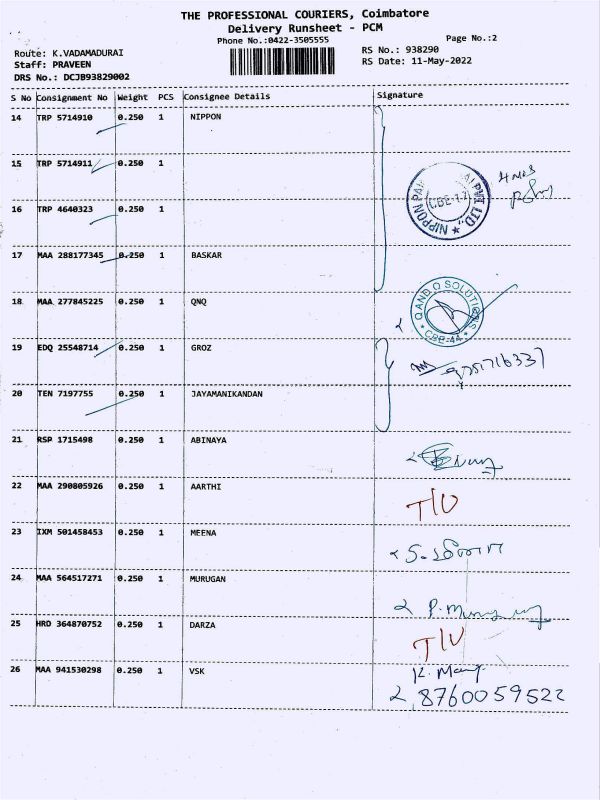 THE PROFESSIONAL COURIERS, Coimbatore
Delivery Runsheet - PCM
Phone No.:0422-3505555
Page No.:2
Route: K.VADAMADURAI
RS No.: 938290
Staff: PRAVEEN
RS Date: 11-May-2022
DRS No.: DCJB93829002
S No Consignment No Weight PCS Consignee Details Signature
14 TRP 5714910 0.250 1 NIPPON
15 TRP 5714911 0.250 1
4 Nos
16 TRP 4640323 0.250 1
17 MAA 288177345 0.250 1 BASKAR
18 MAA 277845225 0.250 1 QNQ
Q AND Q SOLUTIONS
CBE-44
19 EDQ 25548714 0.250 1 GROZ
20 TEN 7197755 0.250 1 JAYAMANIKANDAN
21 RSP 1715498 0.250 1 ABINAYA
22 MAA 290805926 0.250 1 AARTHI
T/U
23 IXM 501458453 0.250 1 MEENA
24 MAA 564517271 0.250 1 MURUGAN
25 HRD 364870752 0.250 1 DARZA
T/U
26 MAA 941530298 0.250 1 VSK
8760059522